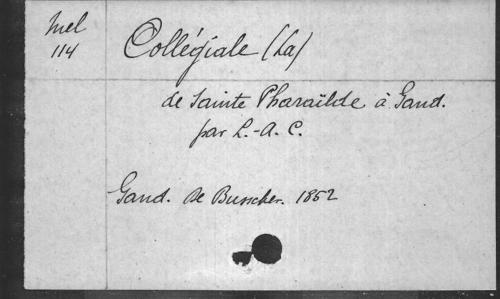 Mel
114
Collégiale (La)
de Sainte Pharaïlde à Gand.
par L.-A. C.
Gand. De Busscher. 1852